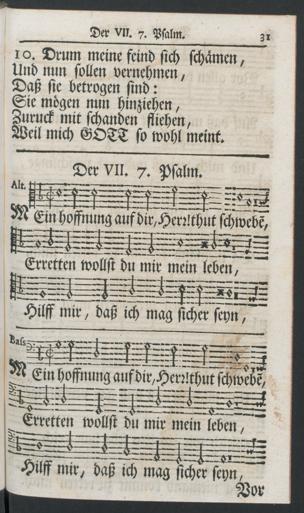 Der VII. 7. Psalm. 31
10. Drum meine feind sich schämen,
Und nun sollen vernehmen,
Daß sie betrogen sind:
Sie mögen nun hinziehen,
Zuruck mit schanden fliehen,
Weil mich GOTT so wohl meint.
Der VII. 7. Psalm.
Alt.
MEin hoffnung auf dir, Herr! thut schwebē,
Erretten wollst du mir mein leben,
Hilff mir, daß ich mag sicher seyn,
Bass
MEin hoffnung auf dir, Herr! thut schwebē,
Erretten wollst du mir mein leben,
Hilff mir, daß ich mag sicher seyn,
Vor